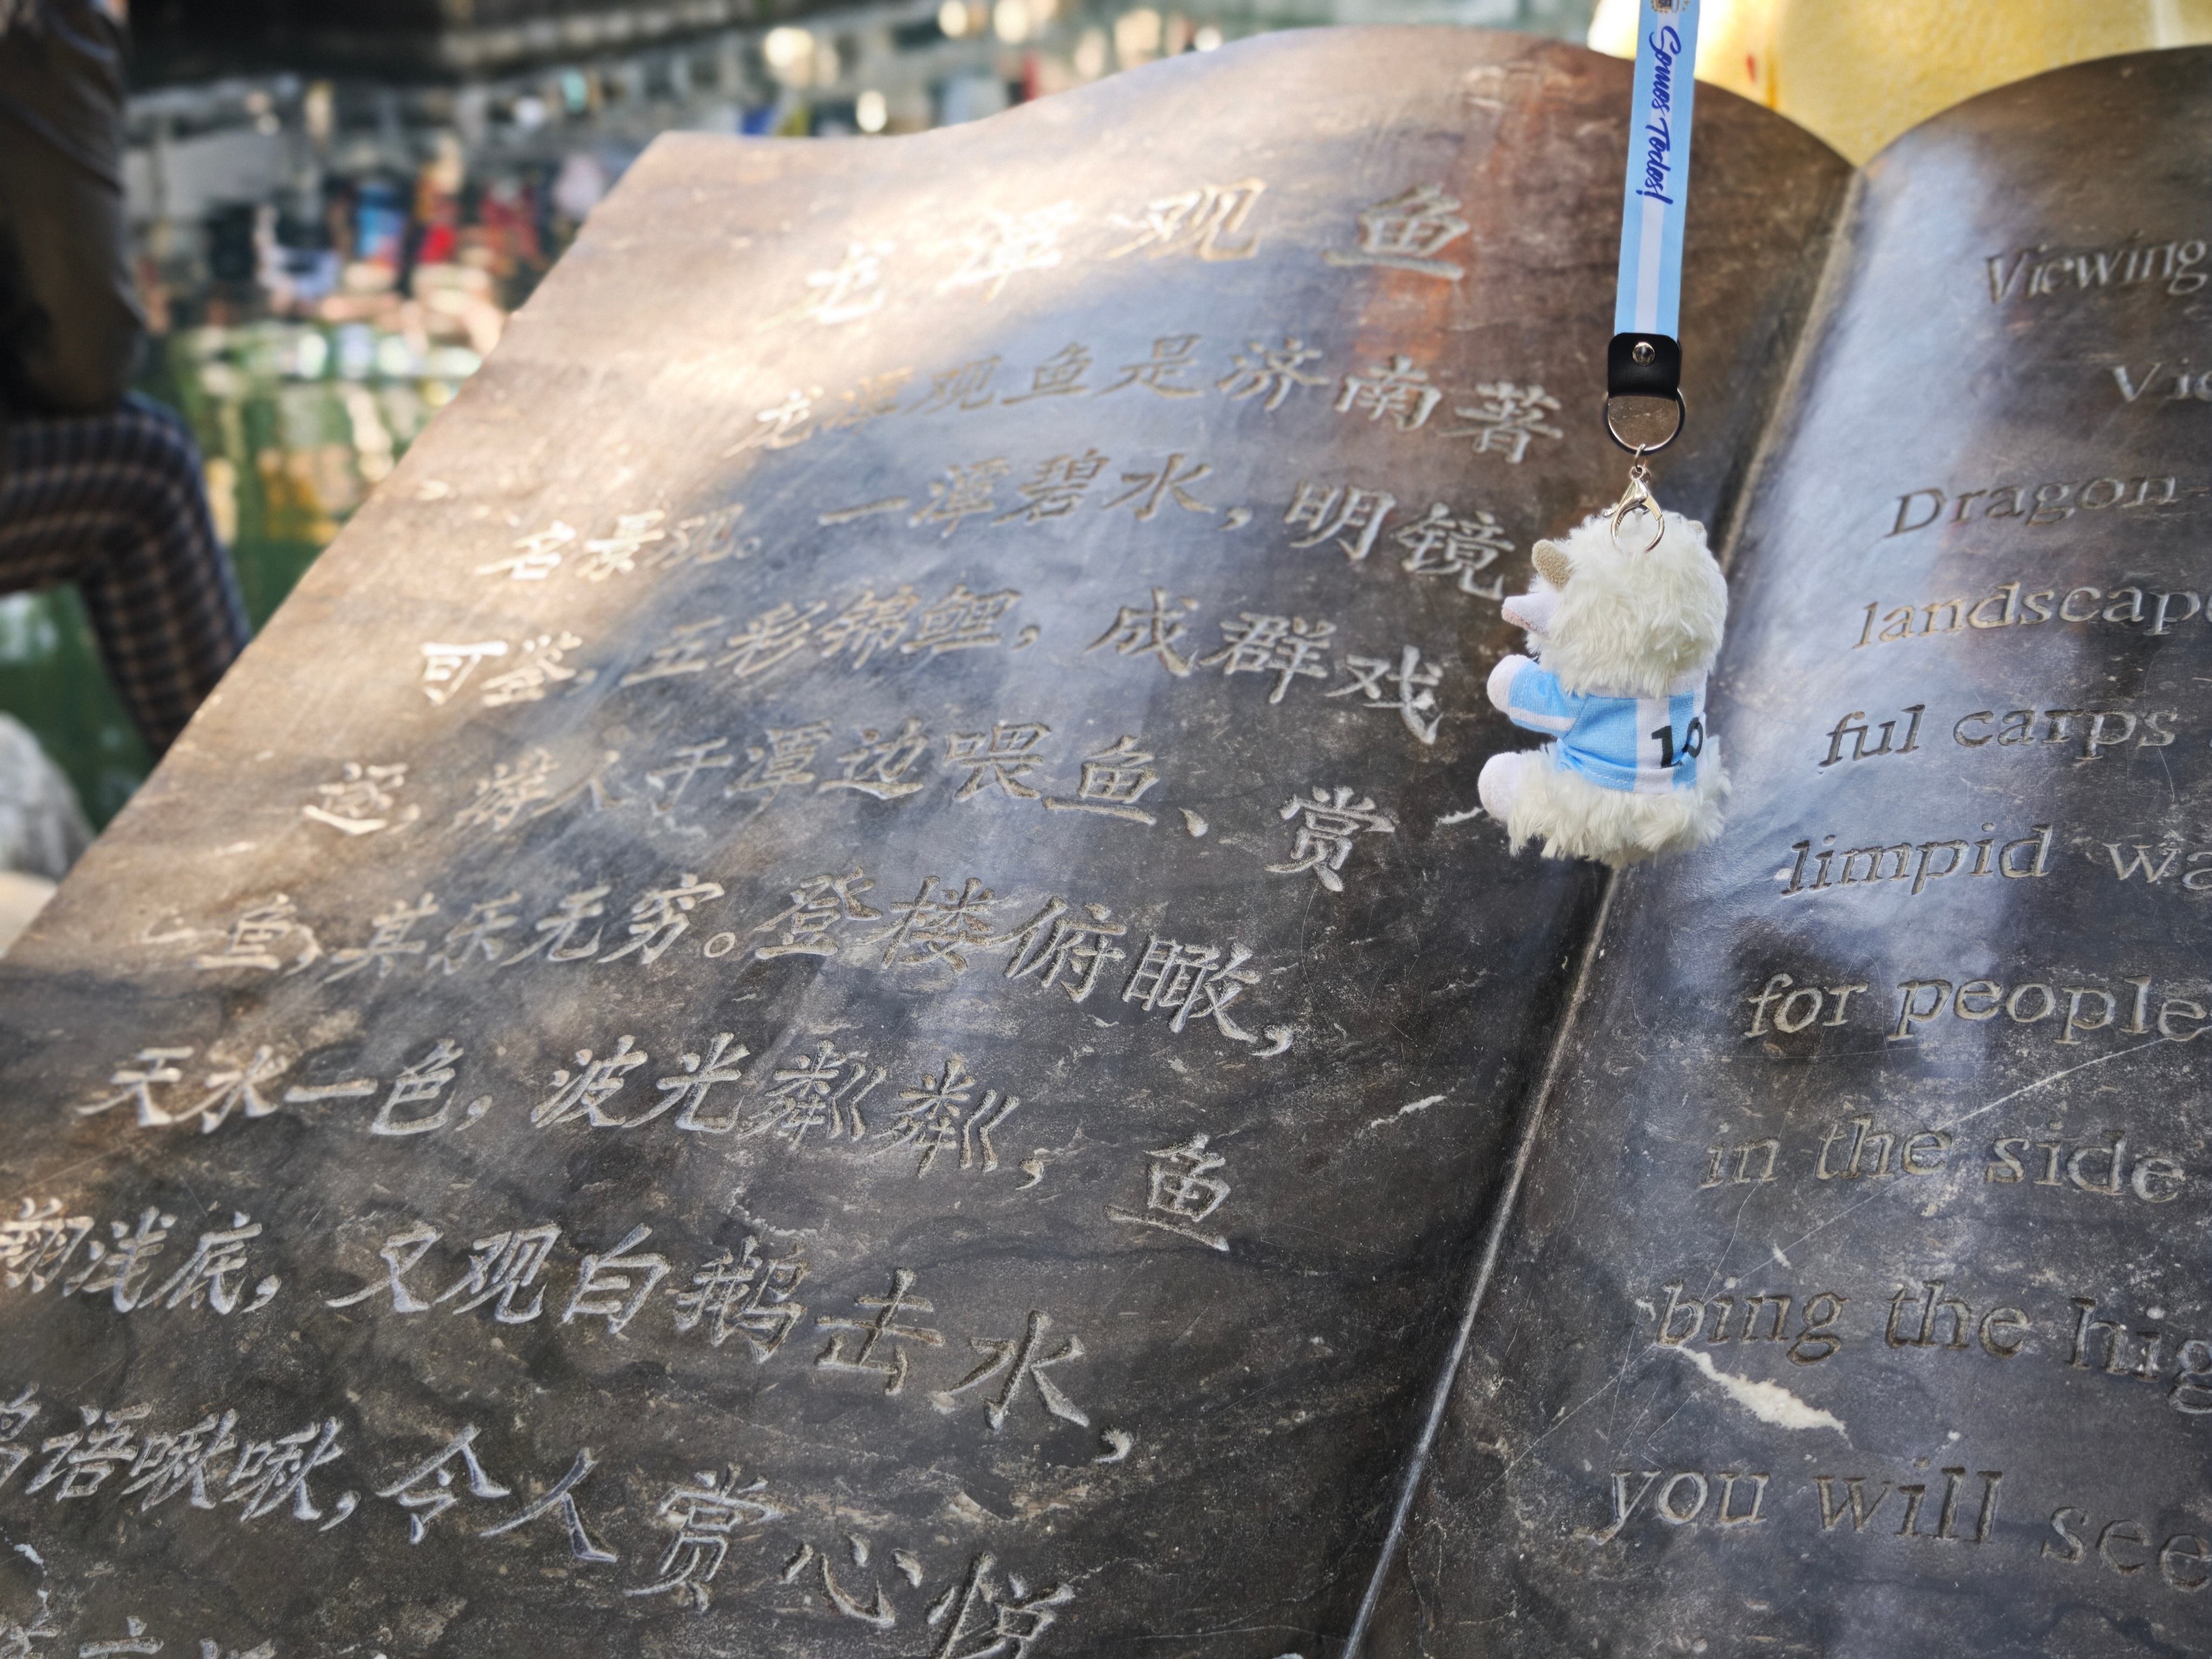 龙潭观鱼
龙潭观鱼是济南著
名景观。一潭碧水，明镜
可鉴，五彩锦鲤，成群戏
逐，游人于潭边喂鱼、赏
鱼，其乐无穷。登楼俯瞰，
天水一色，波光粼粼，鱼
翔浅底，又观白鹅击水，
鸟语啾啾，令人赏心悦
Viewing
Dragon-
landscap
ful carps
limpid wa
for people
in the side
bing the hig
you will see
Somos Todos!
10